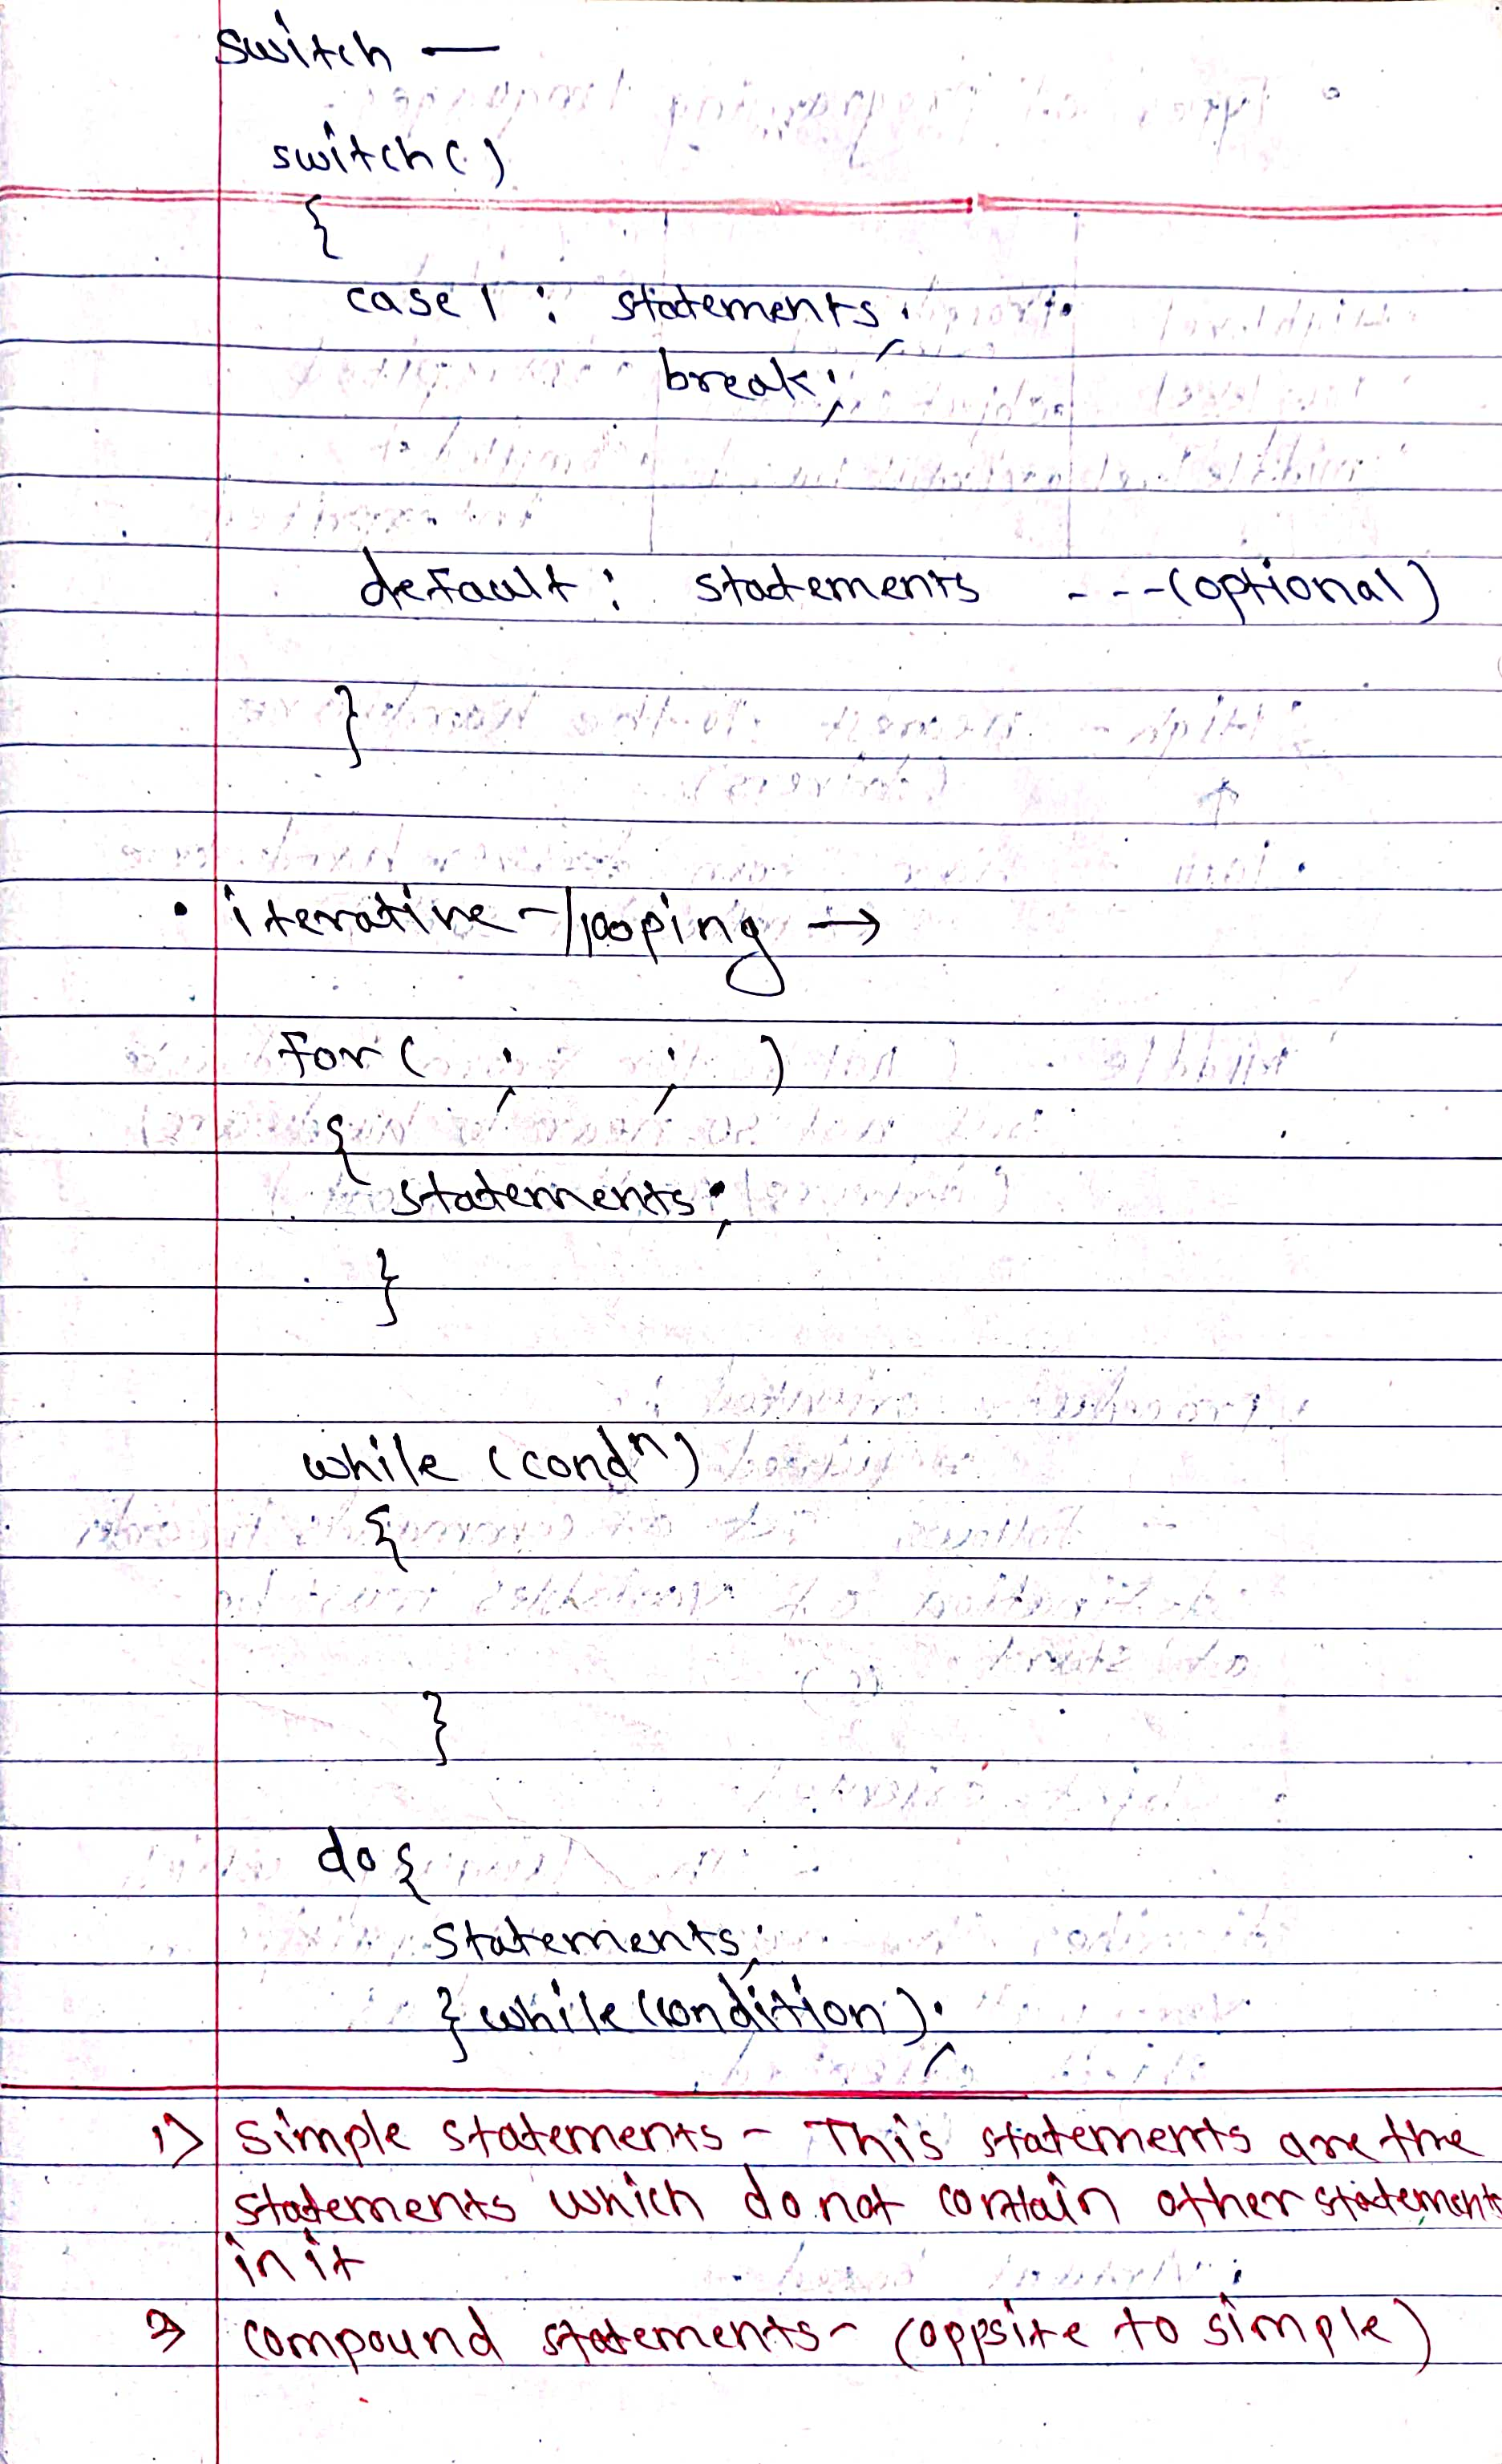 switch —
switch( )
{
case 1 : statements;
break;
default : statements ---(optional)
}
• iterative - looping →
for ( ; ; )
{
statements;
}
while (condⁿ)
{
}
do {
statements;
} while (condition);
1> simple statements - This statements are the
statements which do not contain other statements
in it
2> compound statements - (oppsite to simple)